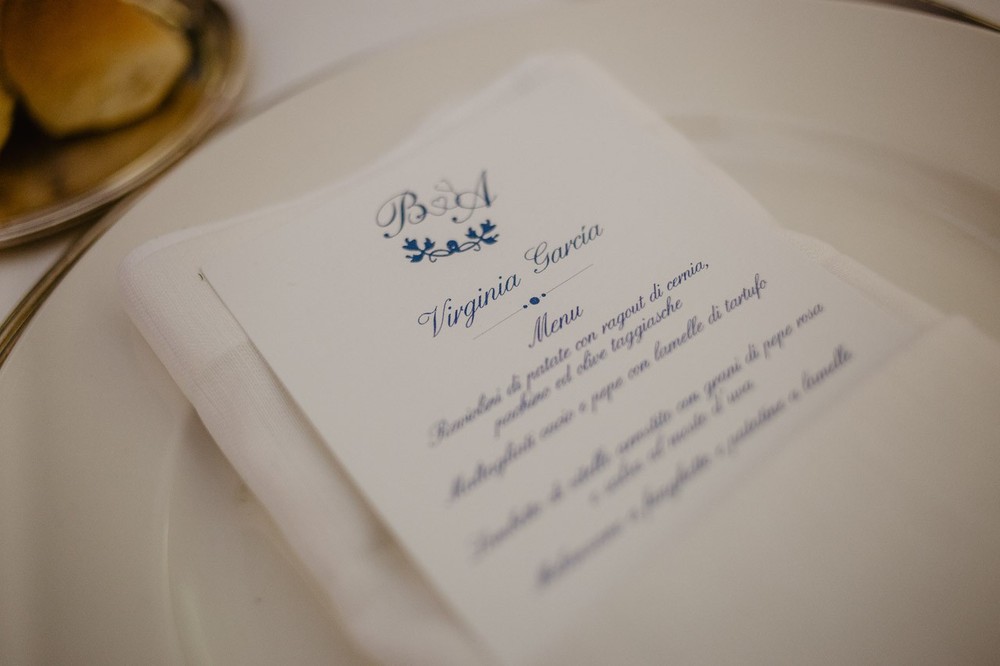 B&A
Virginia García
Menu
Raviolini di patate con ragout di cernia,
pachino ed olive taggiasche
Maltagliati cacio e pepe con lamelle di tartufo
di vitello arrostito con grani di pepe rosa
e salsa al mosto d'uva
e patatine a lamelle